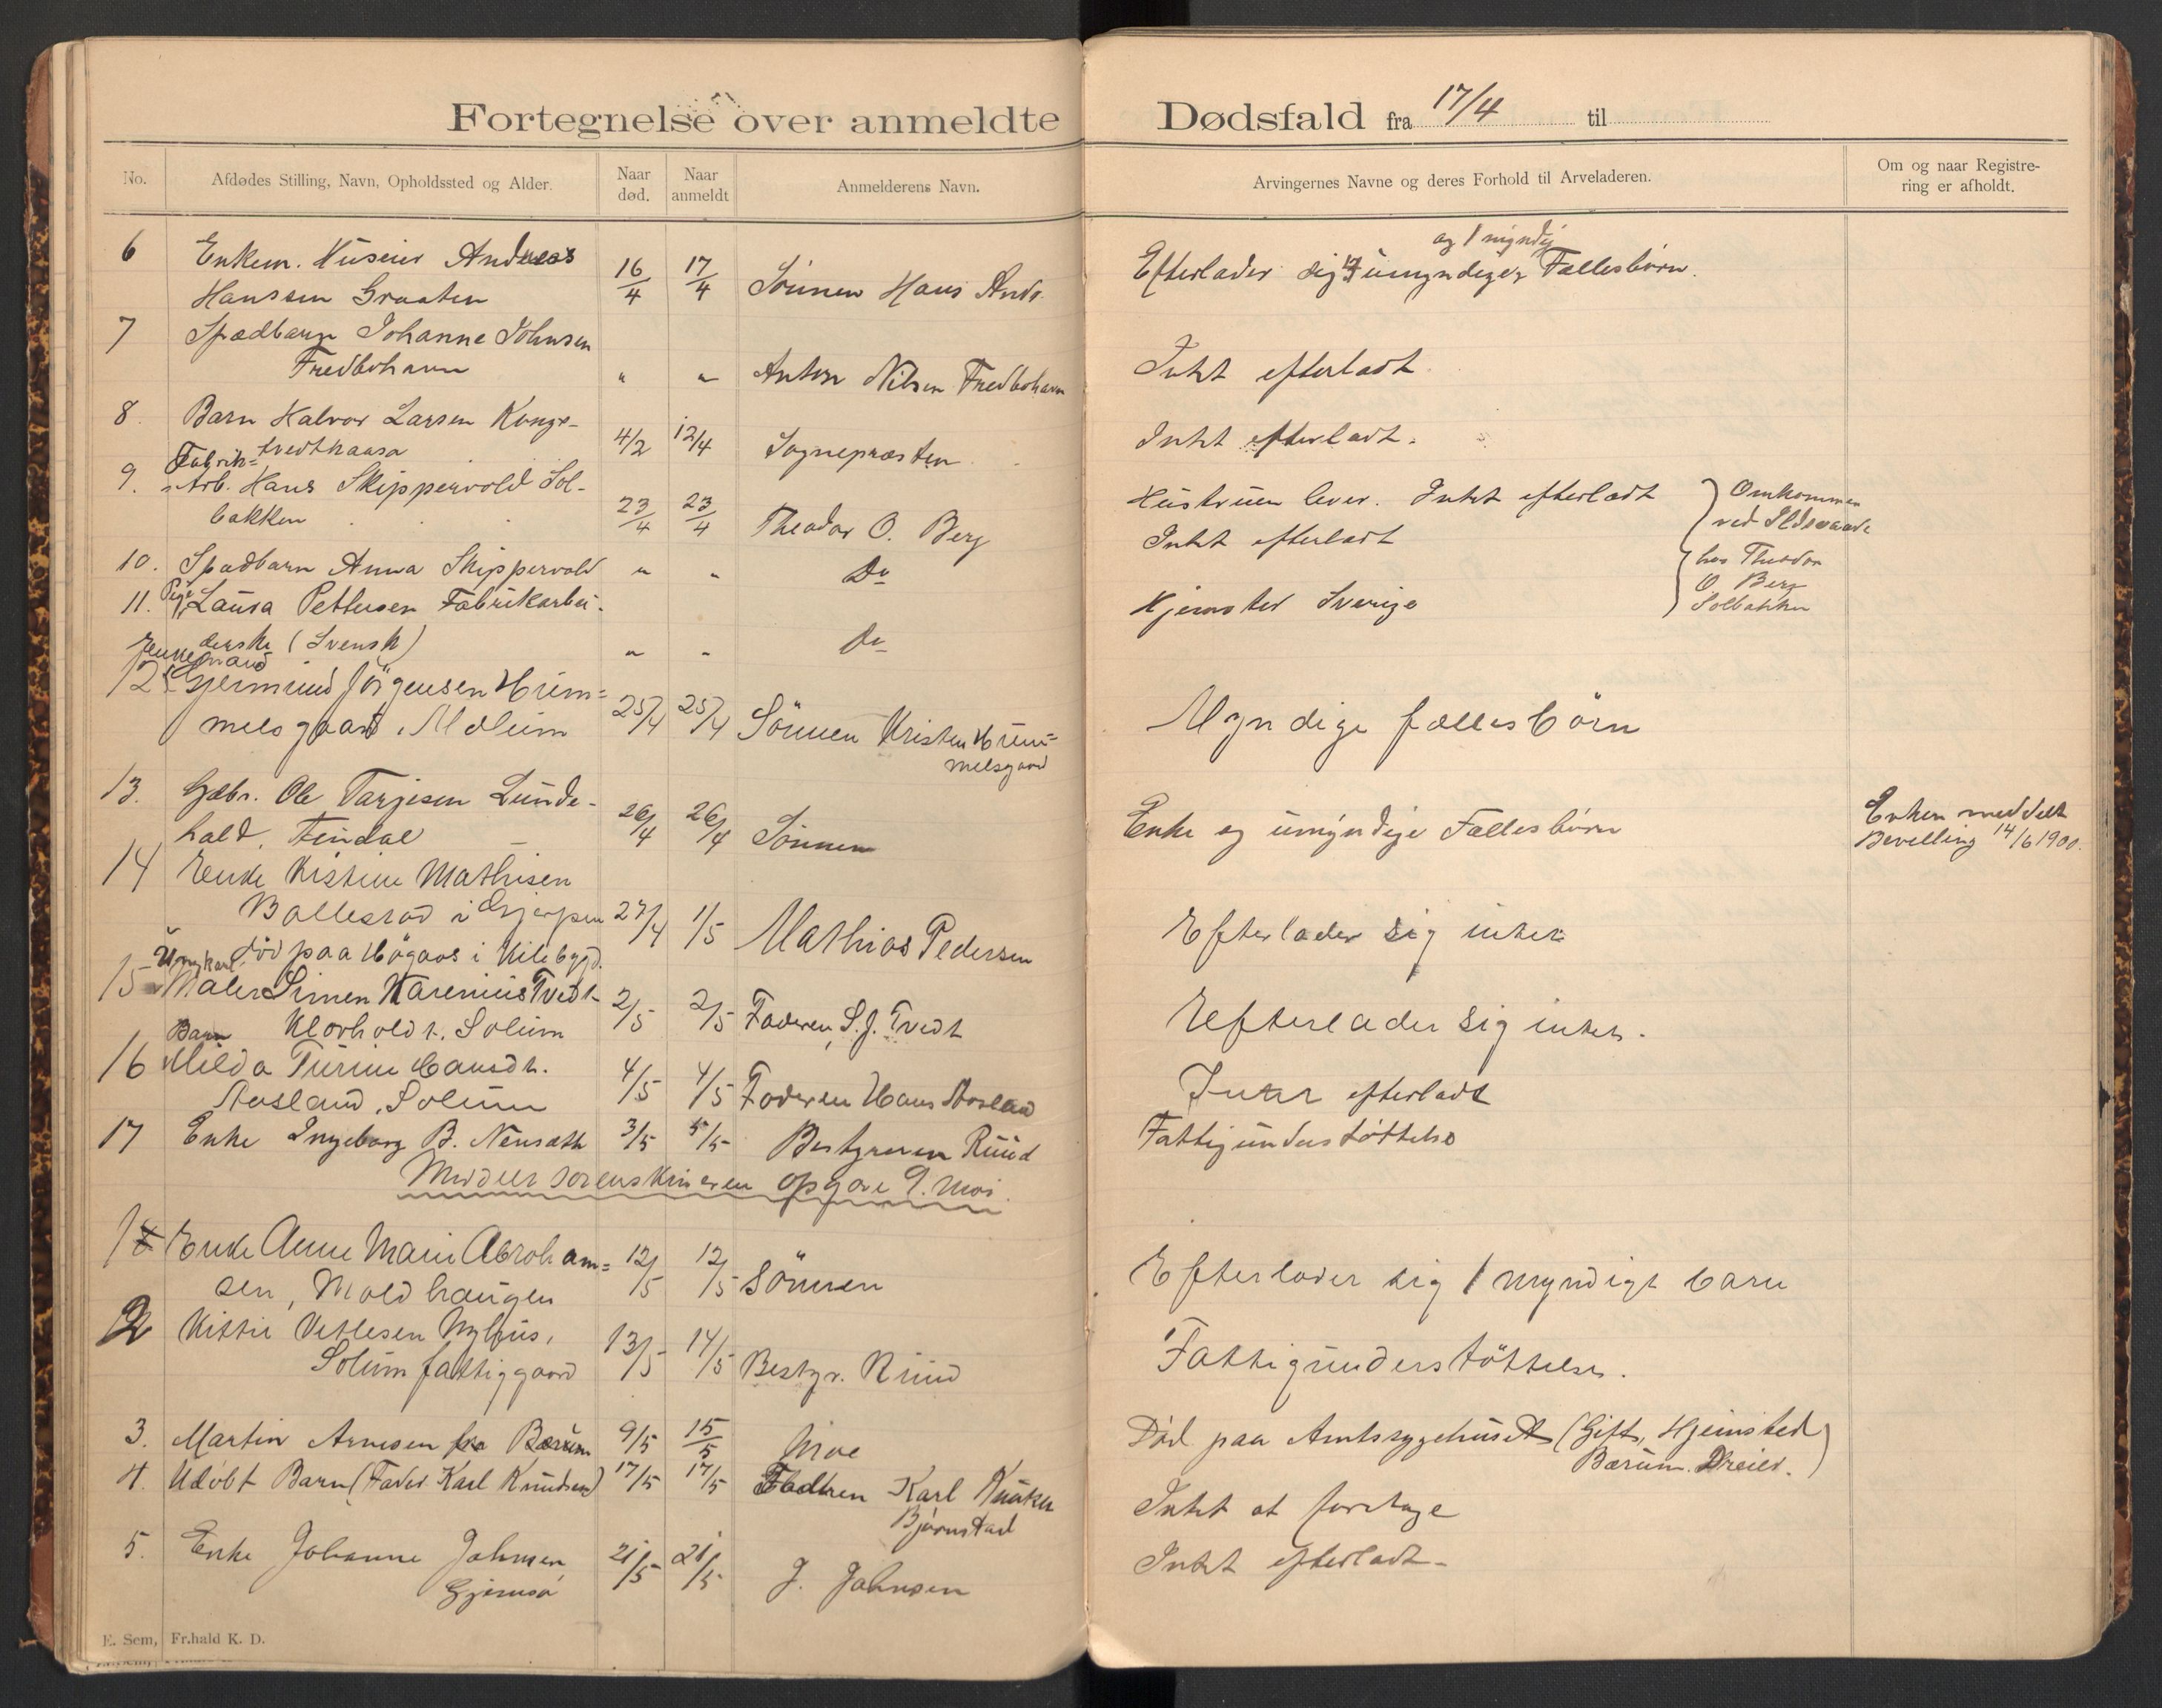 Fortegnelse over anmeldte Dødsfald fra 17/4 til
No. Afdødes Stilling, Navn, Opholdssted og Alder. Naar død. Naar anmeldt Anmelderens Navn. Arvingernes Navne og deres Forhold til Arveladeren. Om og naar Registrering er afholdt.
og 1 myndig
6 Enkem. Huseier Andreas Efterlader sig 4 umyndige Fællesbörn.
Hanssen Graaten 16/4 17/4 Sönnen Hans Andr.
7 Spædbarn Johanne Johnsen
Fredbohavn " " Anton Nilsen Fredbohavn Intet efterladt.
8. Barn Halvor Larsen Konge-
tvedthaasa 4/2 12/4 Sognepræsten Intet efterladt.
Fabrik-
9. Arb. Hans Skippervold Sol-
bakken 23/4 23/4 Theodor O. Berg Hustruen lever. Intet efterladt
10. Spædbarn Anna Skippervold " " Do Intet efterladt
Omkommen
ved Ildsvaade
hos Theodor
O. Berg
Solbakken
Pige
11. Laura Pettersen Fabrikarbei-
derske (Svensk) " " Do Hjemsted Sverige
Enkemand
12 Gjermund Jörgensen Hrim=
melsgaard, Melum 25/4 25/4 Sönnen Kristen Hrim=
melsgaard Myndige fællesbörn
13. Gbr. Ole Targesen Lunde-
hald, 26/4 26/4 Sönnen Enke og umyndige Fællesbörn Enken meddelt
Bevilling 14/6 1900.
14 Enke Kistine Mathisen
Ballestad i Gjerpen 27/4 1/5 Mathias Pedersen Efterlader sig intet
död paa Högaas i Kilebygd.
Ungkarl
15 Maler Simen Karenius Tvedt
Klovholdt. Solum 2/5 2/5 Faderen S. J. Tvedt Efterlader sig intet.
Barn
16 Milda Turine Hansdt.
Aasland, Solum 4/5 4/5 Faderen Hans Aasland Intet efterladt
17 Enke Ingeborg B. 3/5 5/5 Bestyreren Ruud Fattigunderstøttelse
Meddelt sorenskriveren opgave 9. Mai.
18 Enke Anne Marie Abraham=
sen, Moldhaugen 12/5 12/5 Sönnen Efterlader sig 1 myndigt barn
2 Kittil Vetlesen Nyhus,
Solum fattiggaard 13/5 14/5 Bestyr. Ruud Fattigunderstöttelse.
3. Martin Arnesen fra Bærum 9/5 15/5 Moe Död paa Amtssygehuset (Gift, Hjemsted
Bærum. Dreier.)
4. Udöbt Barn (Fader Karl Knudsen) 17/5 17/5 Faderen Karl
Björnstad Intet at foretage
5. Enke Johanne Johnsen
Gjemsø 21/5 21/5 J. Johnsen Intet efterladt
E. Sem, Fr.hald K. D.